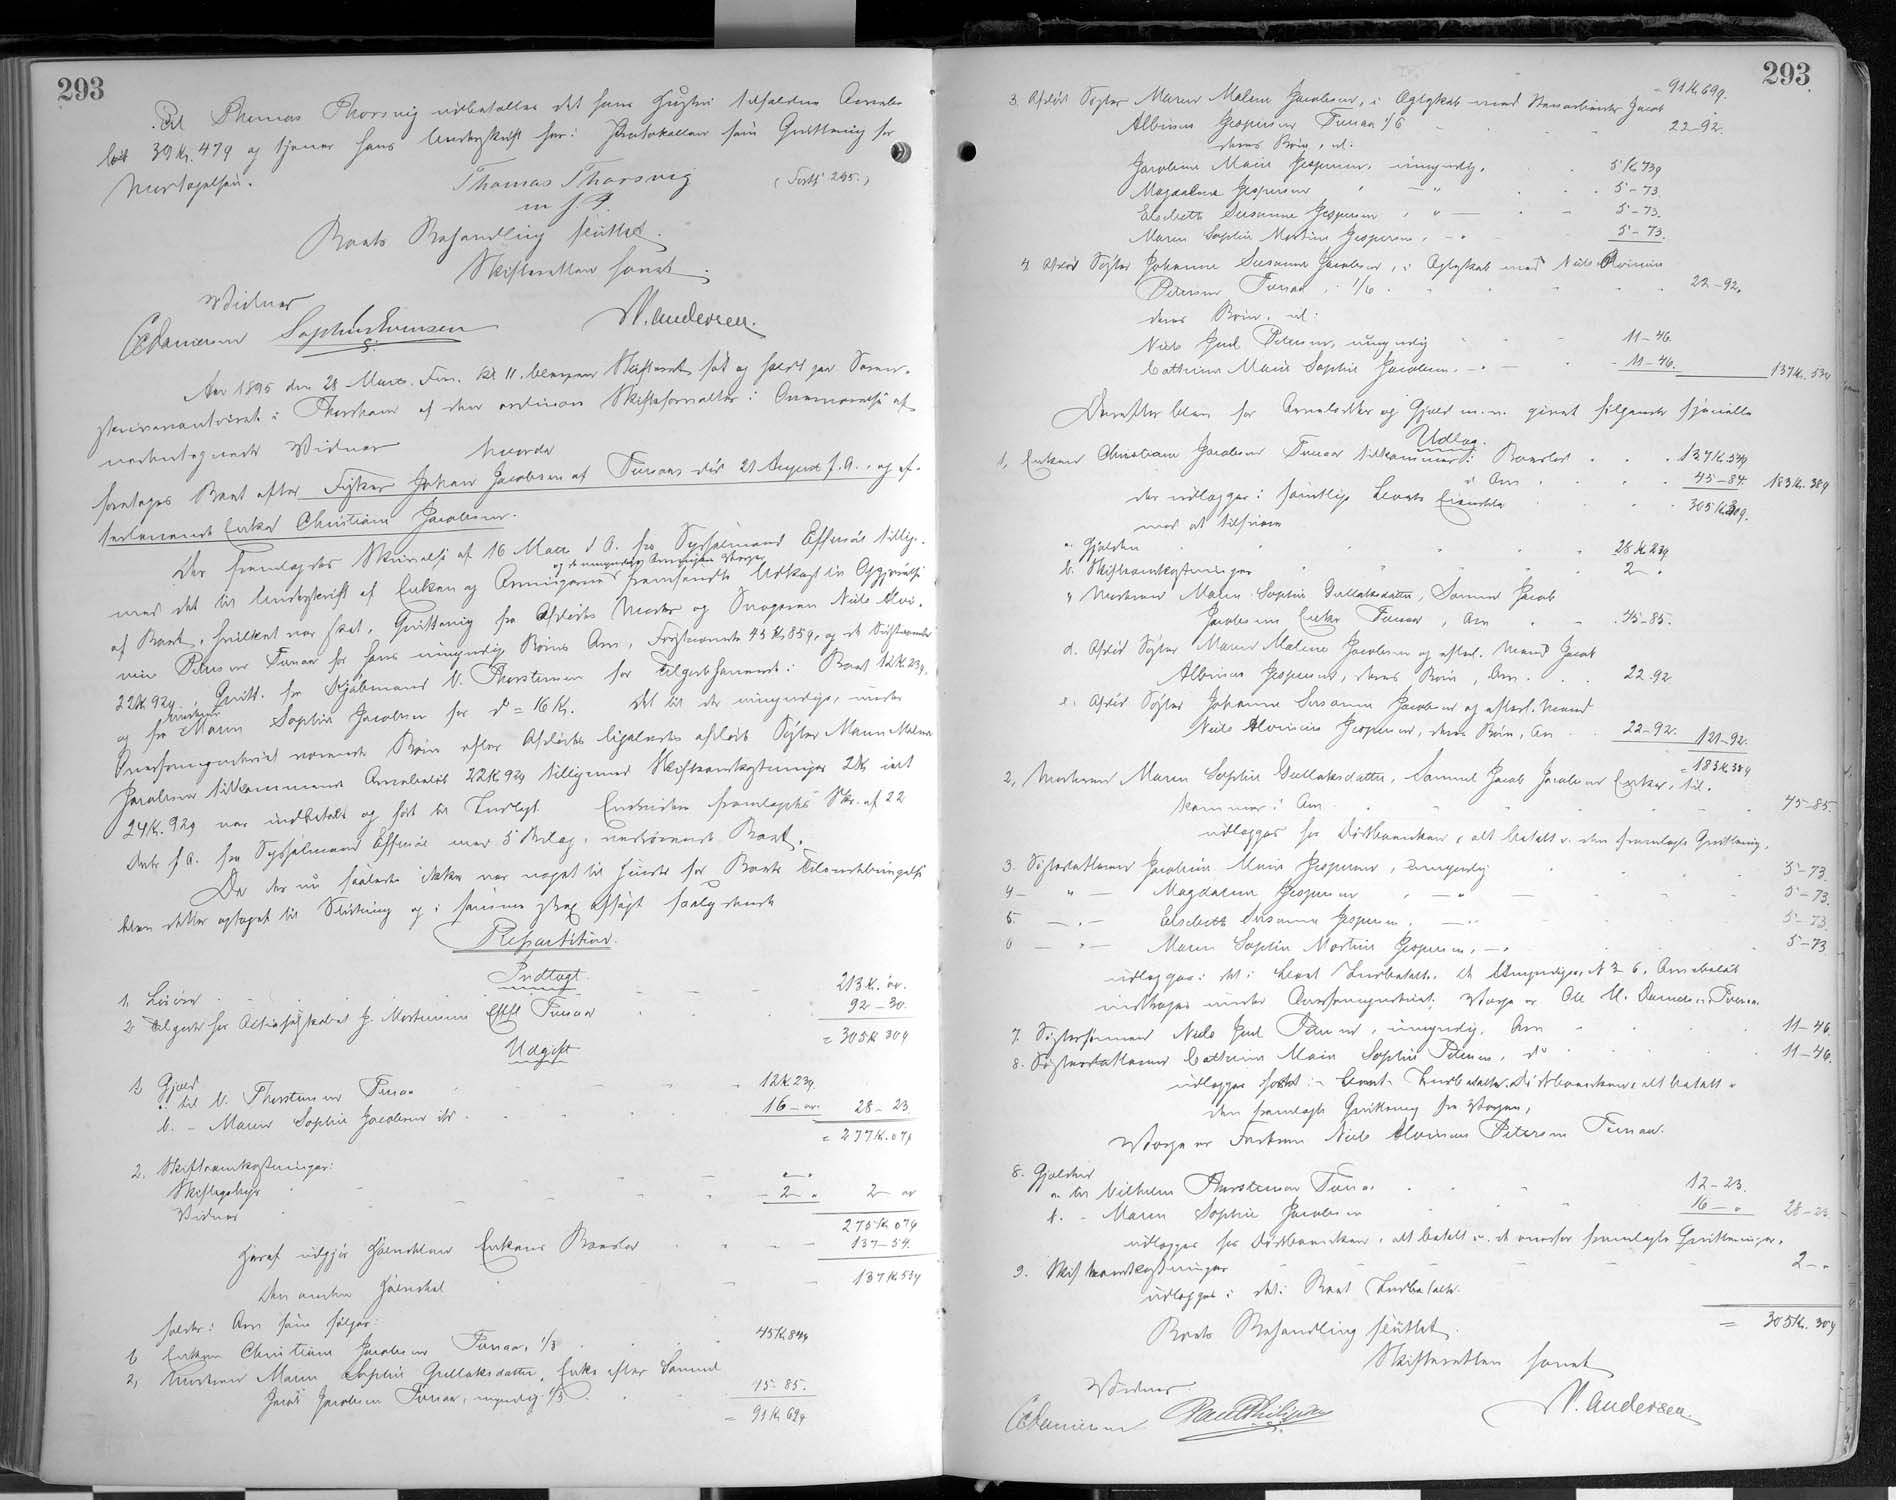 293
Til Thomas Thorsvig udbetaltes det hans Hustru tilfaldne Arvebe-
løb 39 Kr. 47 ø og tjener hans Underskrift her i Protokollen som Quittering for
Modtagelsen.
Thomas Thorsvig (Forts 295.)
m f. P.
Boets Behandling sluttet.
Skifteretten hævet.
Vidner
CDanielsen Sophus Svensen W. Andersen.
Aar 1895 den 28 Marts. Fm. Kl 11. blev en Skifteret sat og holdt paa Soren-
skriverkontoret i Thorshavn af den ordinære Skifteforvalter i Overværelse af
undertegnede Vidner hvorda
foretoges Boet efter Fisker Johan Jacobsen af Funaas død 21 August f. A., og ef-
terlevende Enke Christiane Jacobsen.
Der fremlagdes Skrivelse af 16 Marts d A. fra Sysselmand Effersøe tillige-
og de umyndige Arvingers Værger
med det til Underskrift af Enken og Arvingerne fremsendte Udkast til Opgjørelse
af Boet, hvilket var sket, Quittering fra Afdødes Moder og Svogeren Niels Alvi-
nius Petersen Funaa for hans umyndige Børns Arv, Førstnævnte 45 K 85 ø, og de Sidstnævnte
22 K 92 ø, Quitt. fra Kjøbmand V. Thorsteinson for Tilgodehavende i Boet 12 K 23 ø,
og fra Maren Sophie Jacobsen for do = 16 K. Det til de umyndige, under
Overformynderiet værende Børn efter Afdødes ligeledes afdøde Søster Maren Malene
Jacobsen tilkommende Arvebeløb 22 K 92 ø tilligemed Skifteomkostninger 2 K ialt
24 K. 92 ø var indbetalt og ført til Indtægt. Endvidere fremlagdes Skr. af 22
Dcbr f A. fra Sysselmand Effersøe med 5 Bilag, vedrørende Boet.
Da der nu saaledes ikke var noget til Hinder for Boets Tilendebringelse
blev dette optaget til Slutning og i samme strax afsagt saalydende
Repartition.
Indtægt.
1. Løsøre 213 K. ør.
2 Tilgode hos Actieselskabet J. Mortensens Eftfl Funaa 92 - 30.
= 305 K 30 ø
Udgift
1, Gjæld
a. til V. Thorsteinson Funaa 12 K 23 ø.
b. - Maren Sophie Jacobsen ibd. 16 - ør. 28 - 23.
= 277 K. 07 ø
2. Skifteomkostninger:
Skiftegebyr " - "
Vidner - 2 - " 2 - ør
275 K 07 ø
Heraf udgjør Halvdelen Enkens Boeslod 137 - 54.
Den anden Halvdel 137 K 53 ø
falder i Arv som følger:
1, Enken Christiane Jacobsen Funaa, 1/3 45 K 84 ø
2, Moderen Maren Sophie Gullaksdatter, Enke efter Samuel
Jacob Jacobsen Funaa, myndig 1/3 45 - 85.
= 91 K. 69 ø
293
- 91 K. 69 ø.
3. Afdøde Søster Maren Malene Jacobsen, i Ægteskab med Huusarbeider Jacob
Albinus Jespersen Funaa 1/6 22 - 92.
deres Børn, nl:
Jacobine Marie Jespersen, umyndig, 5 K 73 ø
Magdalene Jespersen " - " 5 - 73.
Elsebeth Susanne Jespersen, " - 5 - 73.
Maren Sophie Mortine Jespersen, - " 5 - 73.
4 Afdøde Søster Johanne Susanne Jacobsen, i Ægteskab med Niels Alvinius
Petersen Funaa, 1/6 22 - 92.
deres Børn, nl:
Niels Juul Petersen, umyndig 11 - 46.
Cathrine Marie Sophie Jacobsen, - " - 11 - 46. 137 K. 53 ø
Derefter blev for Arvelodder og Gjæld m. v. givet følgende specielle
Udlæg.
1, Enken Christiane Jacobsen Funaa tilkommer i Boeslod 137 K. 54 ø
i Arv 45 - 84. 183 K. 38 ø
der udlægges i samtlige Boets Eiendele 305 K 30 ø.
mod at tilsvare
a. Gjælden 28 K 23 ø
b. Skifteomkostninger 2 "
" Moderen Maren Sophie Gullaksdatter, Samuel Jacob
Jacobsens Enke Funaa, Arv 45 - 85.
d. Afdøde Søster Maren Malene Jacobsen og efterl. Mand Jacob
Albinus Jespersens, deres Børn, Arv. 22 - 92
e. Afdøde Søster Johanne Susanne Jacobsen og efterl. Mand
Niels Alvinius Jespersens, deres Børn, Arv 22 - 92. 121 - 92.
= 183 K 38 ø
2, Moderen Maren Sophie Gullaksdatter, Samuel Jacob Jacobsens Enke, til-
kommer i Arv 45 - 85.
udlægges hos Dødboenken, alt betalt v. den fremlagte Quittering,
3. Søsterdatteren Jacobine Marie Jespersen, umyndig 5 - 73.
4 - " - Magdalene Jespersen, - " - 5 - 73.
5. - " - Elsebeth Susanne Jespersen, - " 5 - 73.
6 - " - Maren Sophie Mortine Jespersen, - " 5 - 73
udlægges i det i Boet Indbetalte. De Umyndiges, N 3-6, Arvebeløb
indtages under Overformynderiet. Værge er Ole M. Danielsen Funaa.
7. Søstersønnen Niels Juul Petersen, umyndig, Arv 11 - 46.
8. Søsterdatteren Cathrine Marie Sophie Petersen, do 11 - 46.
udlægges hos Dødboenken, alt betalt v
den fremlagte Quittering fra Værgen,
Værge er Faderen Niels Alvinius Petersen Funaa.
8. Gjælden
a til Vilhelm Thorsteinson Funaa 12 - 23.
b. - Maren Sophie Jacobsen 16 - " 28 - 23
udlægges hos Dødboenken, alt betalt v. de ovenfor fremlagte Quitteringer.
9. Skifteomkostninger 2 - "
udlægges i det i Boet Indbetalte.
= 305 K. 30 ø
Boets Behandling sluttet.
Skifteretten hævet
Vidner.
CDanielsen W. Andersen.